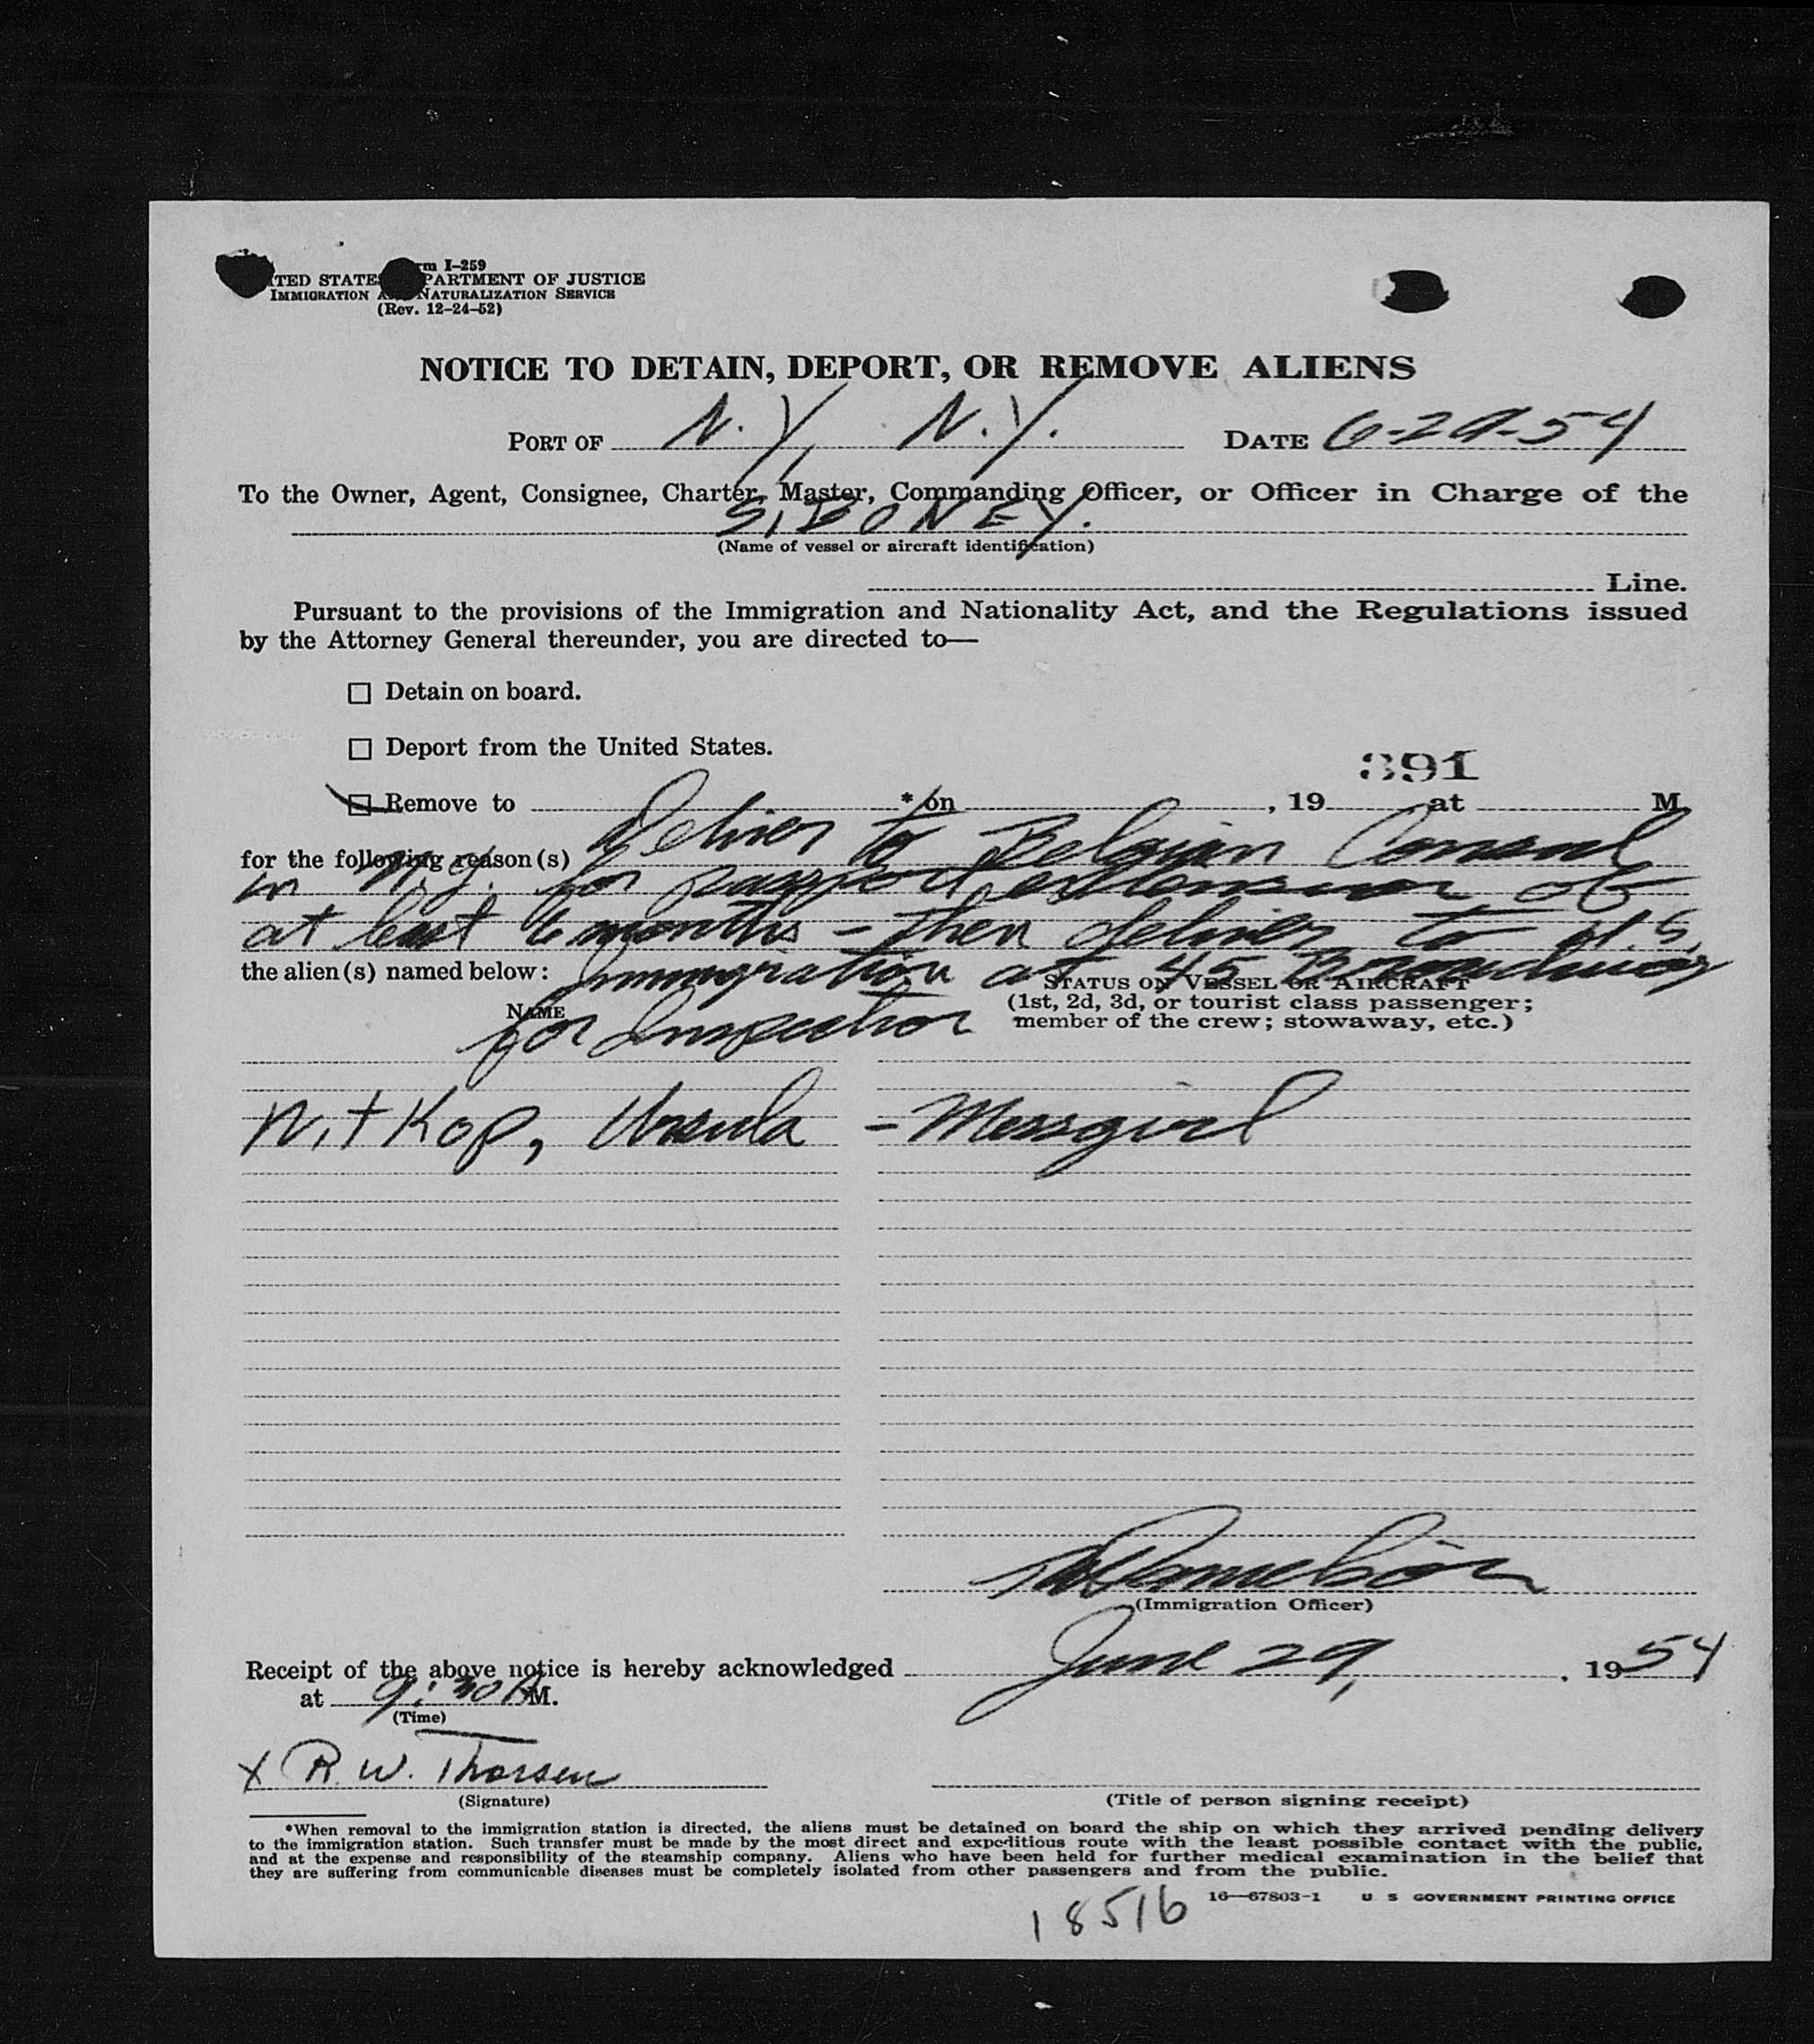 rm I-259
TED STATES PARTMENT OF JUSTICE
IMMIGRATION A NATURALIZATION SERVICE
(Rev. 12-24-52)
NOTICE TO DETAIN, DEPORT, OR REMOVE ALIENS
PORT OF N.Y, N.Y. DATE 6-29-54
To the Owner, Agent, Consignee, Charter, Master, Commanding Officer, or Officer in Charge of the
SIBONEY.
(Name of vessel or aircraft identification)
Line.
Pursuant to the provisions of the Immigration and Nationality Act, and the Regulations issued
by the Attorney General thereunder, you are directed to—
☐ Detain on board.
☐ Deport from the United States.
391
☐ Remove to * on , 19 at M
for the following reason(s) Deliver to Belgian Consul
in N.Y. for passport extension of
at least 6 months - Then deliver to U.S.
the alien(s) named below: Immigration at 45 Broadway
STATUS ON VESSEL OR AIRCRAFT
NAME (1st, 2d, 3d, or tourist class passenger;
for Inspection member of the crew; stowaway, etc.)
WitKop, Ursula - Messgirl
(Immigration Officer)
Receipt of the above notice is hereby acknowledged June 29, , 1954
at 9:30 A M.
(Time)
x R. W. Thorsen
(Signature) (Title of person signing receipt)
*When removal to the immigration station is directed, the aliens must be detained on board the ship on which they arrived pending delivery
to the immigration station. Such transfer must be made by the most direct and expeditious route with the least possible contact with the public,
and at the expense and responsibility of the steamship company. Aliens who have been held for further medical examination in the belief that
they are suffering from communicable diseases must be completely isolated from other passengers and from the public.
16—67803-1 U S GOVERNMENT PRINTING OFFICE
18516